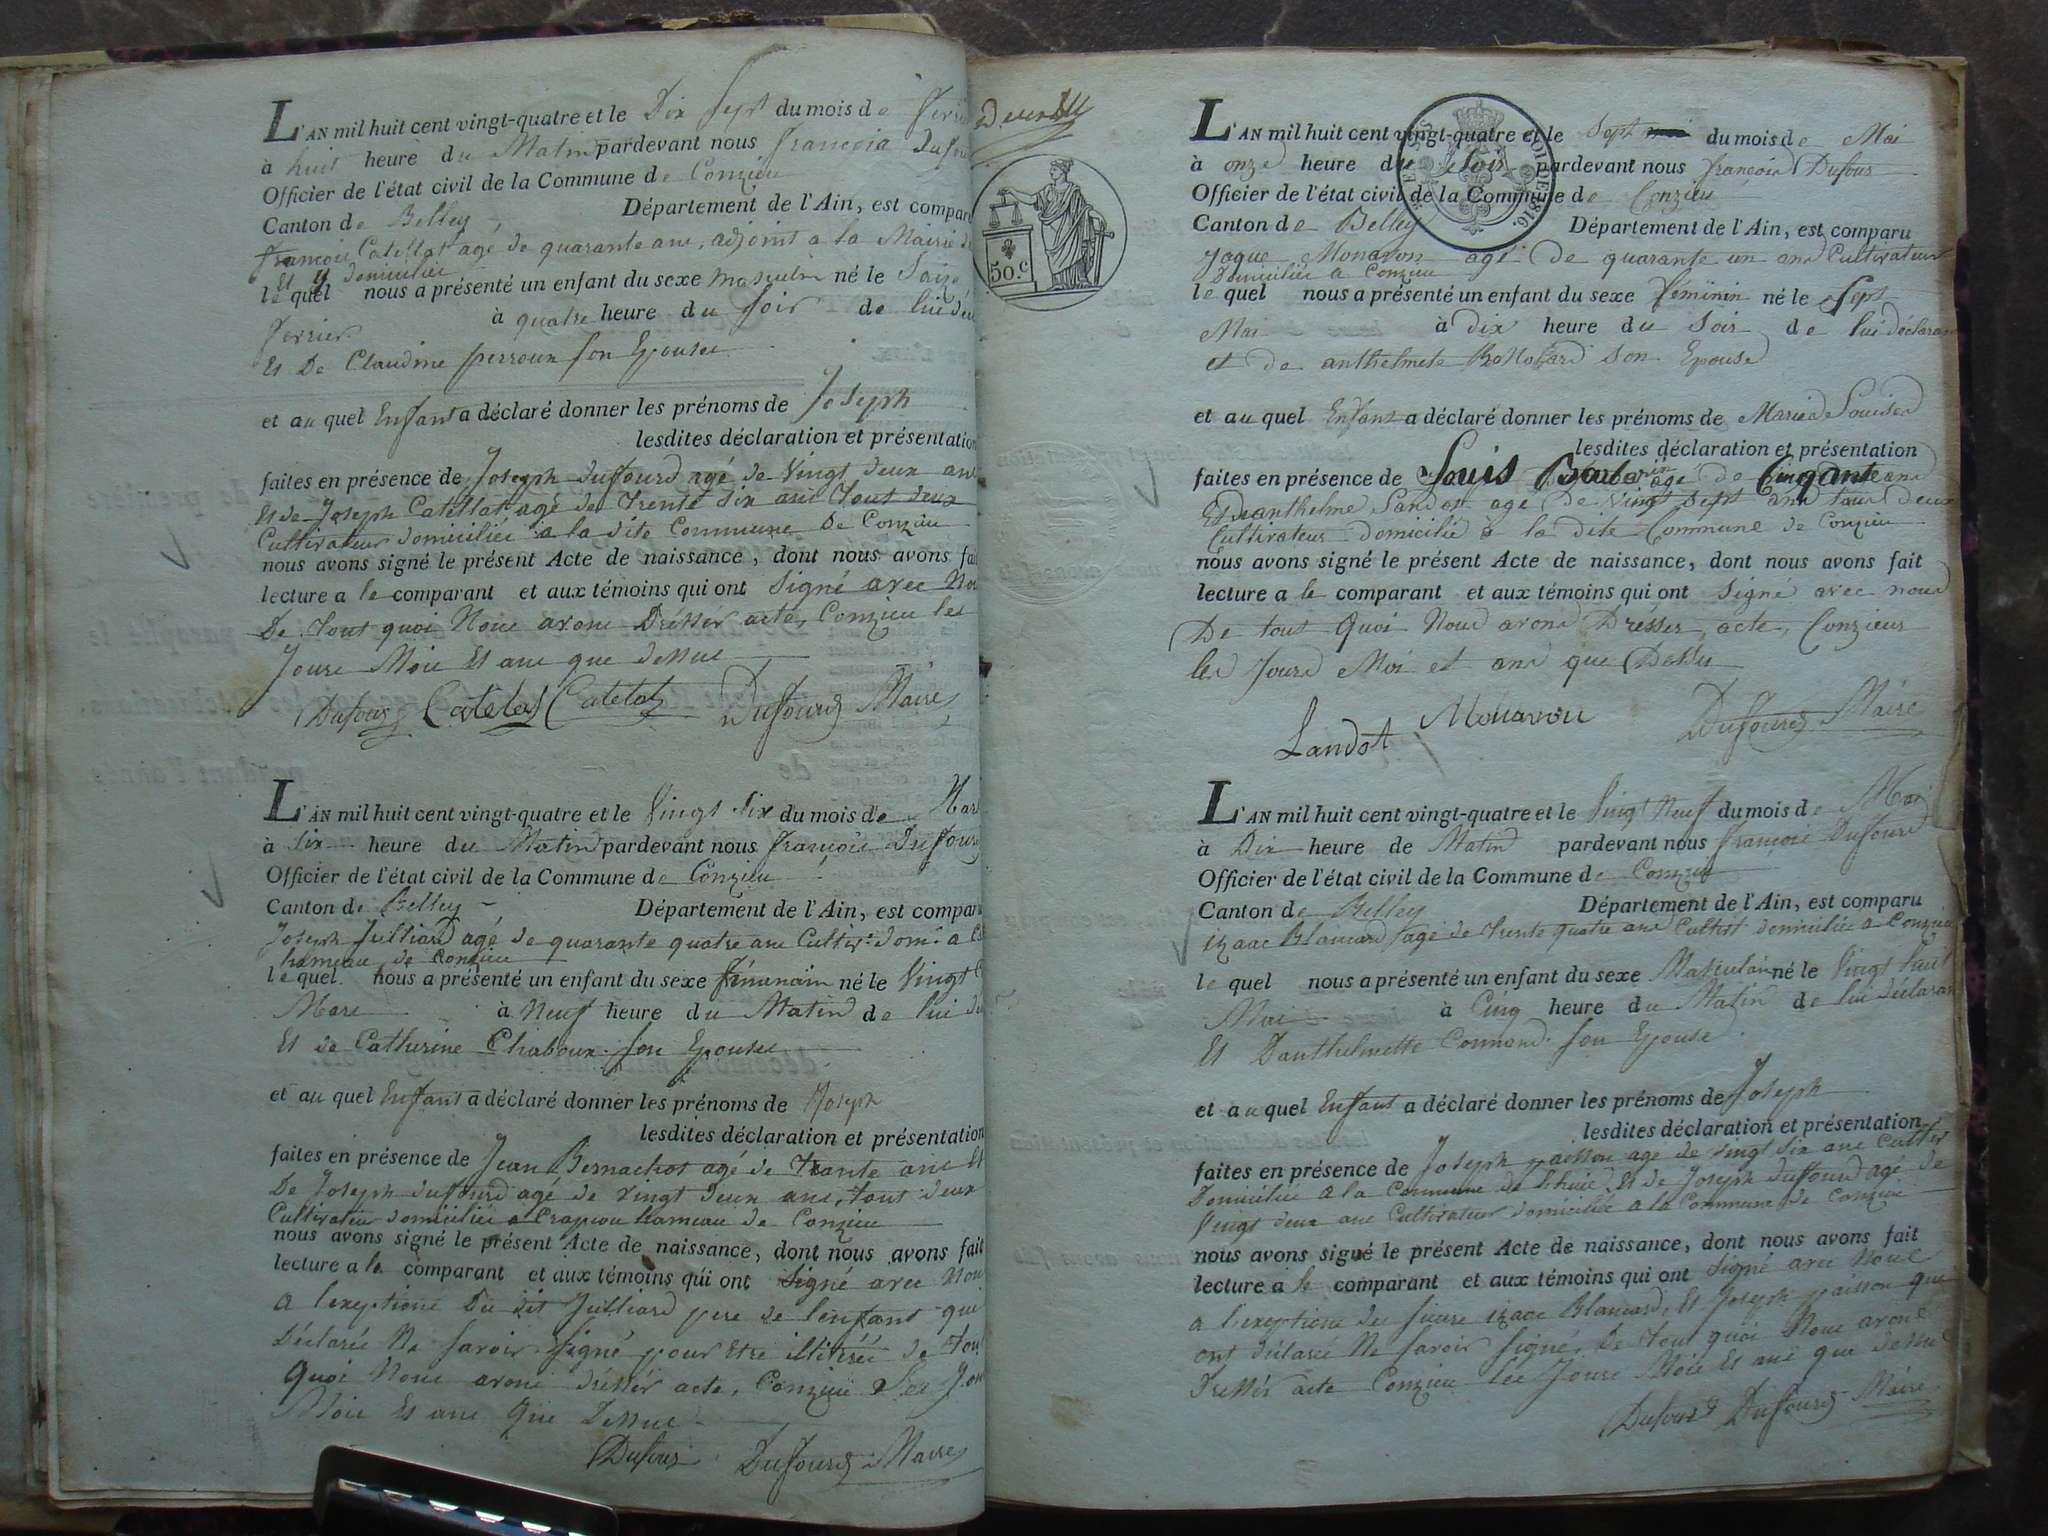 L'AN mil huit cent vingt-quatre et le Dix Sept du mois de
à huit heure du Matin pardevant nous françois
Officier de l'état civil de la Commune de Conzieu
Canton de Belley Département de l'Ain, est
françois Catellat agé de quarante ans, adjoint a la Mairie
Et y domicilié
le quel nous a présenté un enfant du sexe masculin né le
à quatre heure du soir de lui
Et De Claudine perroux son Epouse
et au quel Enfant a déclaré donner les prénoms de Joseph
lesdites déclaration et présentation
faites en présence de Joseph duffourd agé de Vingt deux ans
Et de Joseph Catellat agé de trente six ans tout deux
Cultivateur domicilié a la dite Commune de Conzieu
nous avons signé le présent Acte de naissance, dont nous avons
lecture a le comparant et aux témoins qui ont signé avec
De tout quoi Nous avons Dréssér acte, Conzieu les
Jours Mois Et ans que dessus
Dufour Catelat Catelat Duffourd Maire
L'AN mil huit cent vingt-quatre et le Vingt six du mois de
à six heure du Matin pardevant nous françois
Officier de l'état civil de la Commune de Conzieu
Canton de Belley Département de l'Ain, est
Joseph Julliard agé de quarante quatre ans Cultivr domé a
hameau de Conzieu
le quel nous a présenté un enfant du sexe né le Vingt
Mars à Neuf heure du Matin de lui
Et de Catherine Chaboux son Epouse
et au quel Enfant a déclaré donner les prénoms de Joseph
lesdites déclaration et présentation
faites en présence de Jean Bernachot agé de trante ans Et
De Joseph duffourd agé de vingt deux ans, tout deux
Cultivateur domicilié a Crapiou hameau de Conzieu
nous avons signé le présent Acte de naissance, dont nous avons fait
lecture a le comparant et aux témoins qui ont signé avec Nous
a l'exeptione Du dit Julliard pere de l'enfant qui
Déclarée Ne savoir signé pour Etre de tout
Quoi Nous avons dréssér acte, Conzieu Les
Mois Et ans Que Dessus
Dufour Duffourd Maire
50.c
ROI DE 1816.
L'AN mil huit cent vingt-quatre et le sept du mois de Mai
à onze heure du soir pardevant nous françois Dufour
Officier de l'état civil de la Commune de Conzieu
Canton de Belley Département de l'Ain, est comparu
Jaque Monavon agé de quarante un ans Cultivateur
Domicilié a Conzieu
le quel nous a présenté un enfant du sexe féminin né le sept
Mai à dix heure du soir de lui déclarant
et de anthelmete son Epouse
et au quel Enfant a déclaré donner les prénoms de Marie Louise
lesdites déclaration et présentation
faites en présence de Louis Barbarin agé de Cinqante ans
Et de anthelme Landot agé de vingt sept ans tous deux
Cultivateur domicilié a la dite Commune de Conzieu
nous avons signé le présent Acte de naissance, dont nous avons fait
lecture a le comparant et aux témoins qui ont signé avec nous
De tout Quoi Nous avons Dresser acte, Conzieux
les Jours Moi et ans que Dessu
Landot Monavon Duffourd Maire
L'AN mil huit cent vingt-quatre et le Vingt Neuf du mois de Mai
à Dix heure de Matin pardevant nous françois Duffourd
Officier de l'état civil de la Commune de Conzieu
Canton de Belley Département de l'Ain, est comparu
izaac Blancard agé de trente quatre ans Cultivt domicilié a Conzieu
le quel nous a présenté un enfant du sexe Masculain né le Vingt huit
Mai à Cinq heure du Matin de lui déclarant
Et Danthelmette son Epouse
et au quel Enfant a déclaré donner les prénoms de Joseph
lesdites déclaration et présentation
faites en présence de Joseph paisson agé de vingt six ans Cultivr
Domicilié a la Commune de Et de Joseph duffourd agé de
Vingt deux ans Cultivateur domicilié a la Commune de Conzieu
nous avons signé le présent Acte de naissance, dont nous avons fait
lecture a le comparant et aux témoins qui ont signé avec Nous
a l'exeptione des sieurs izaac Blancard, Et Joseph paisson que
ont déclarée Ne savoir signé, De tout quoi Nous avons
Dréssér acte Conzieu Les Jours Mois Et ans que dessus
Dufour Duffourd Maire